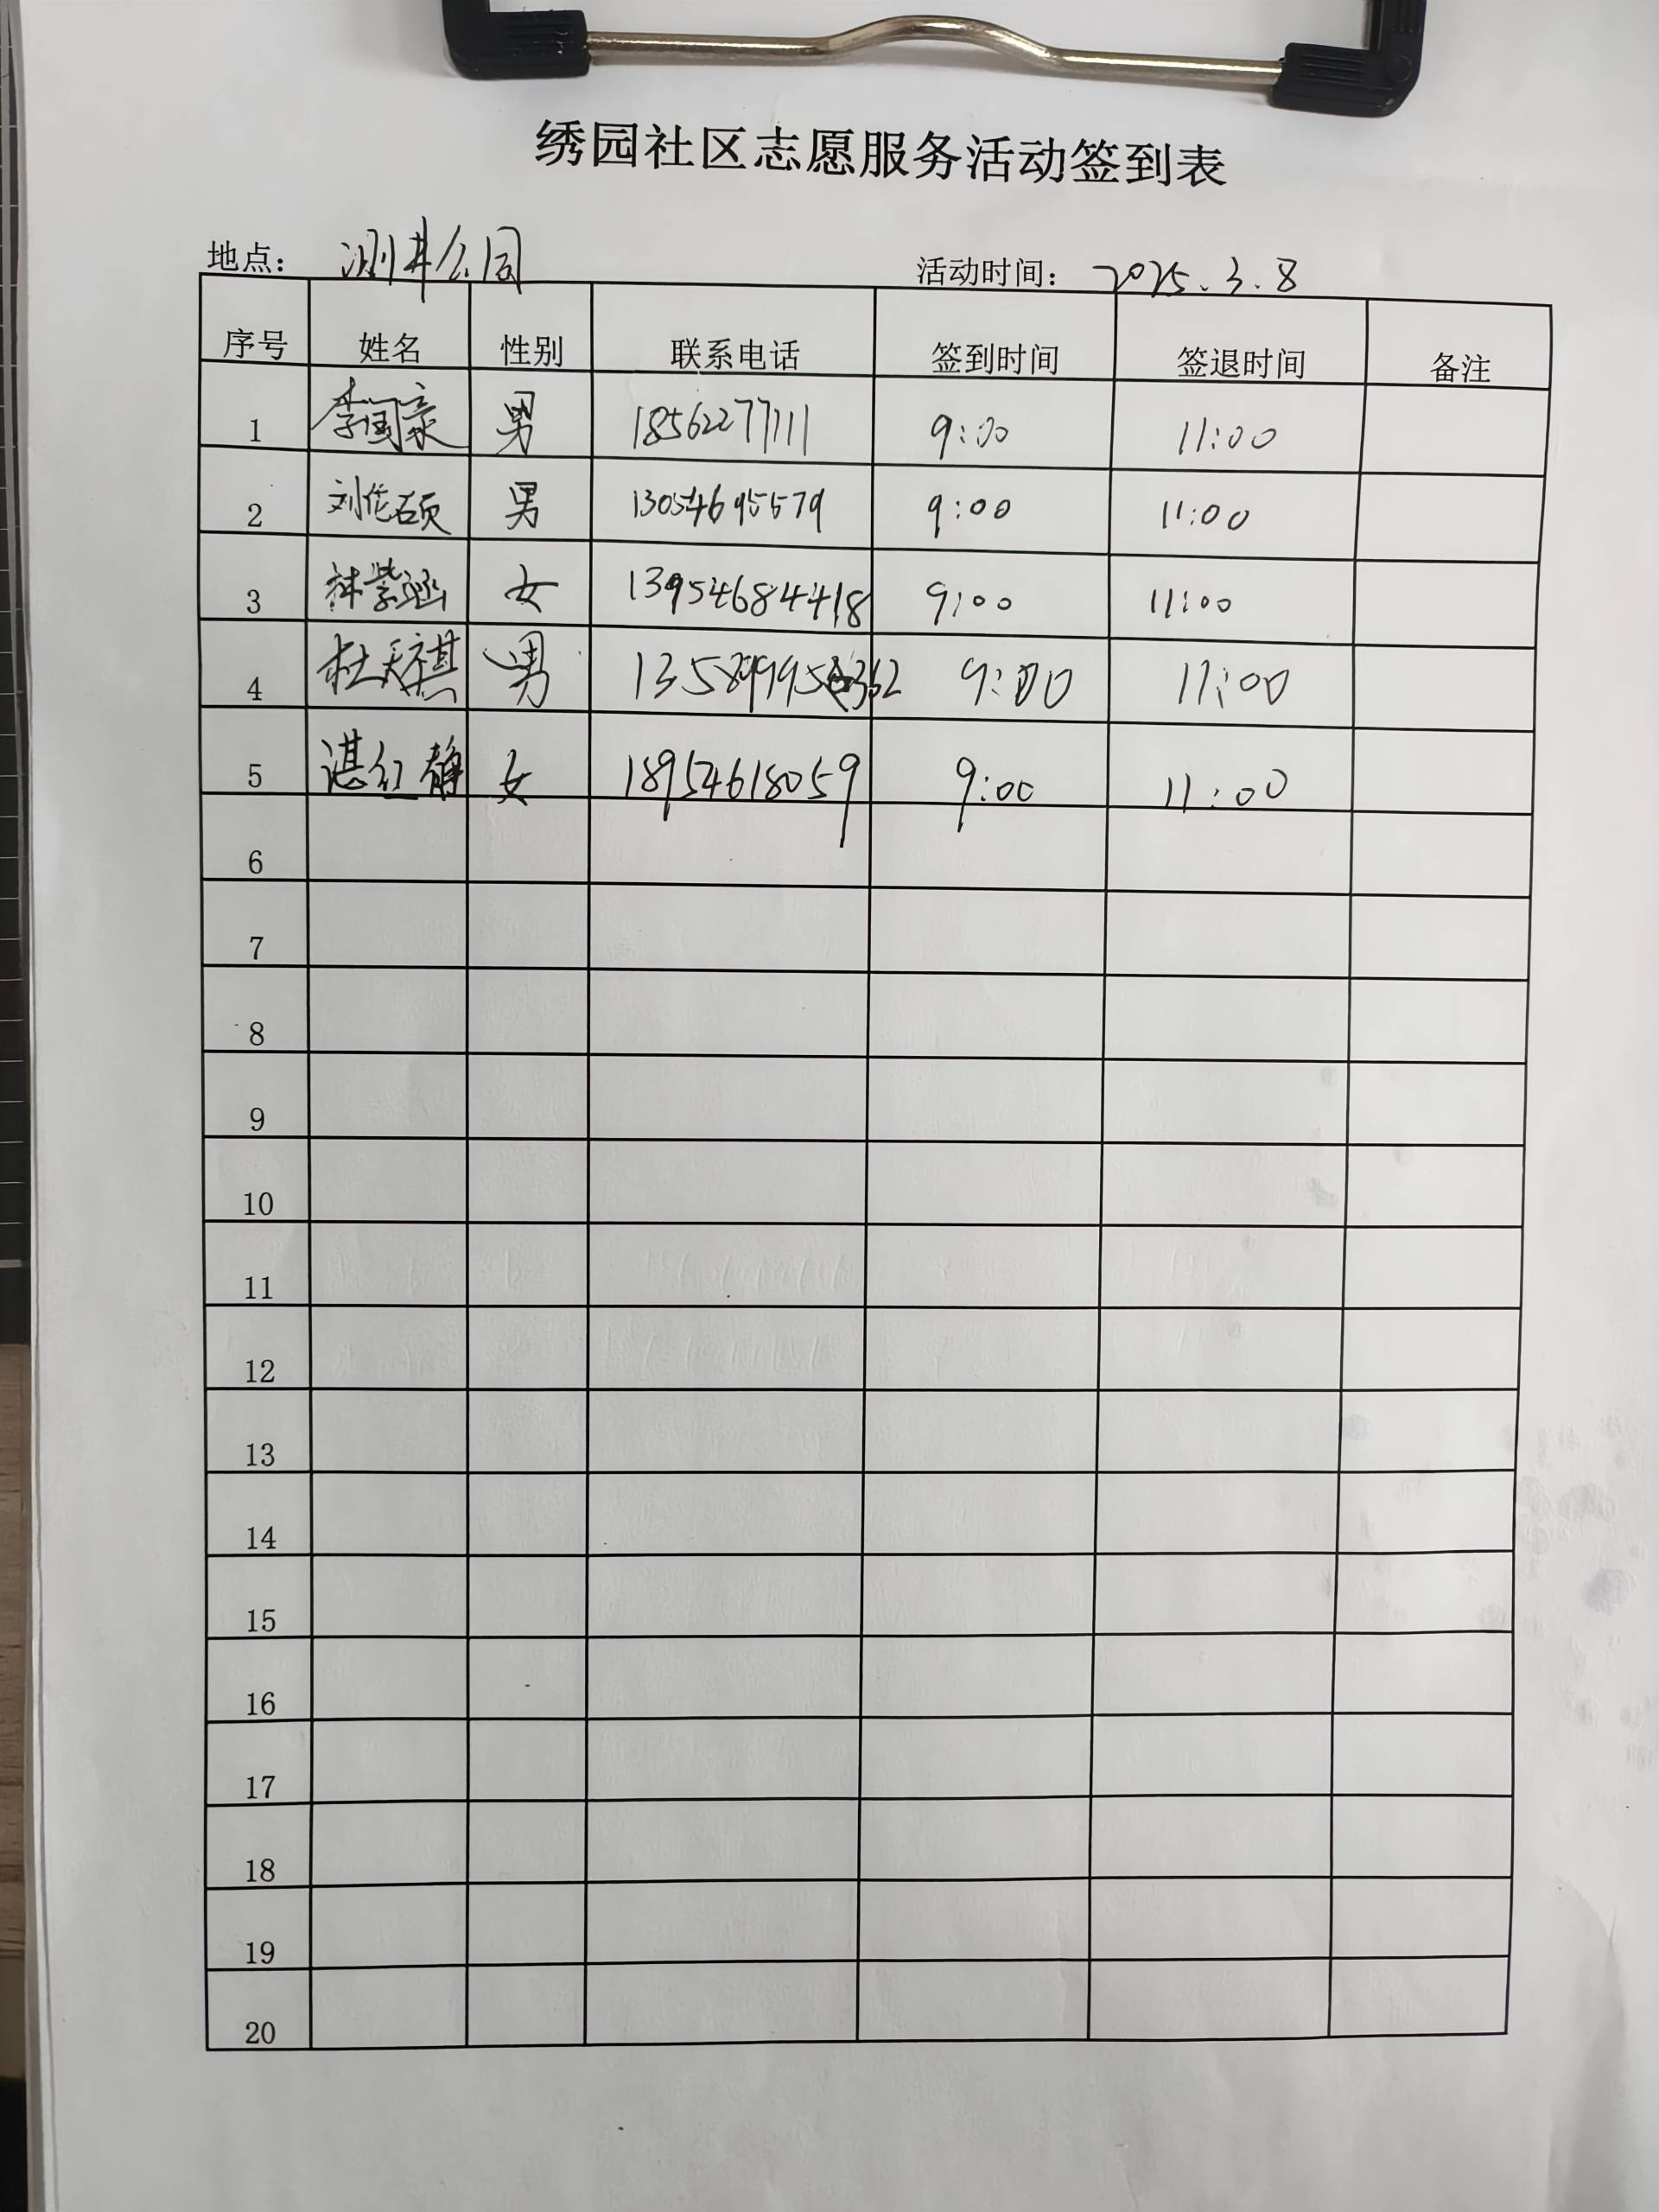 绣园社区志愿服务活动签到表
地点： 测井公园 活动时间： 2025.3.8
序号 姓名 性别 联系电话 签到时间 签退时间 备注
1 李国豪 男 18562277111 9:00 11:00
2 刘佗硕 男 13054695579 9:00 11:00
3 林紫涵 女 13954684418 9:00 11:00
4 杜天祺 男 9:00 11:00
5 谌红静 女 18954618059 9:00 11:00
6
7
8
9
10
11
12
13
14
15
16
17
18
19
20